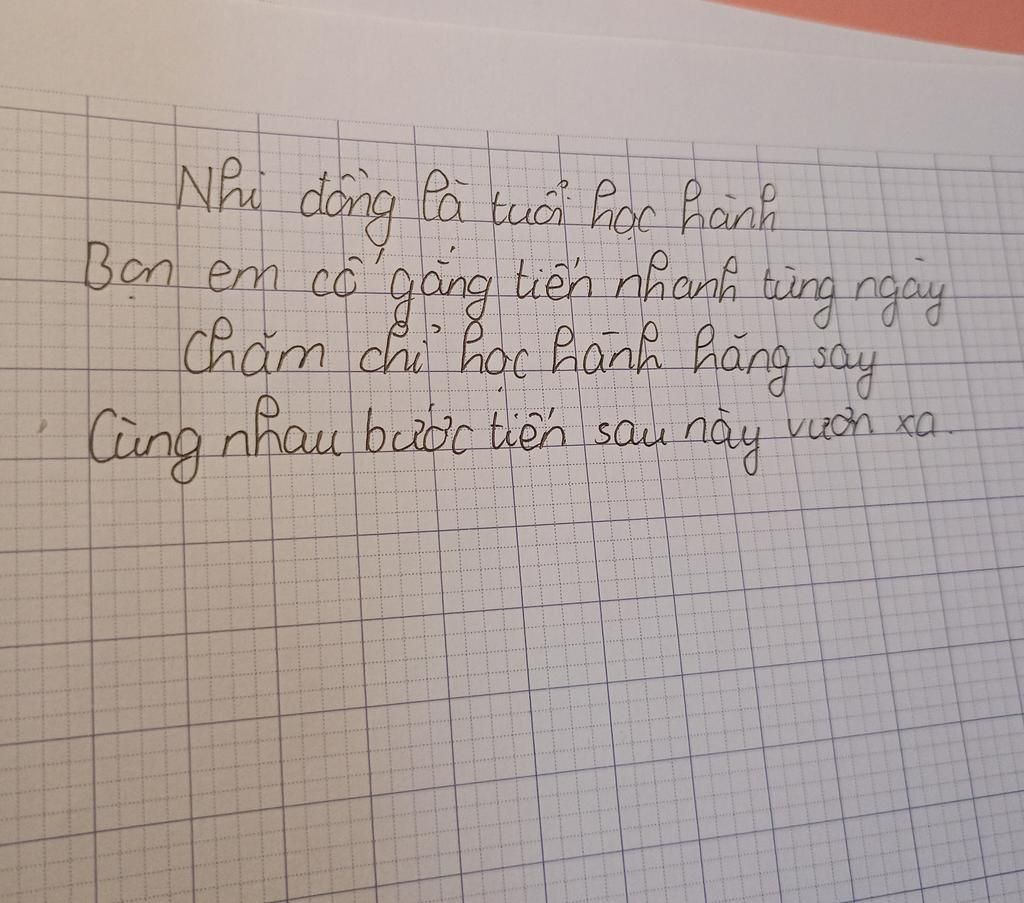 Nhi đồng là tuổi học hành
Bạn em cố gắng tiến nhanh từng ngày
Chăm chỉ học hành hăng say
Cùng nhau bước tiến sau này vươn xa.